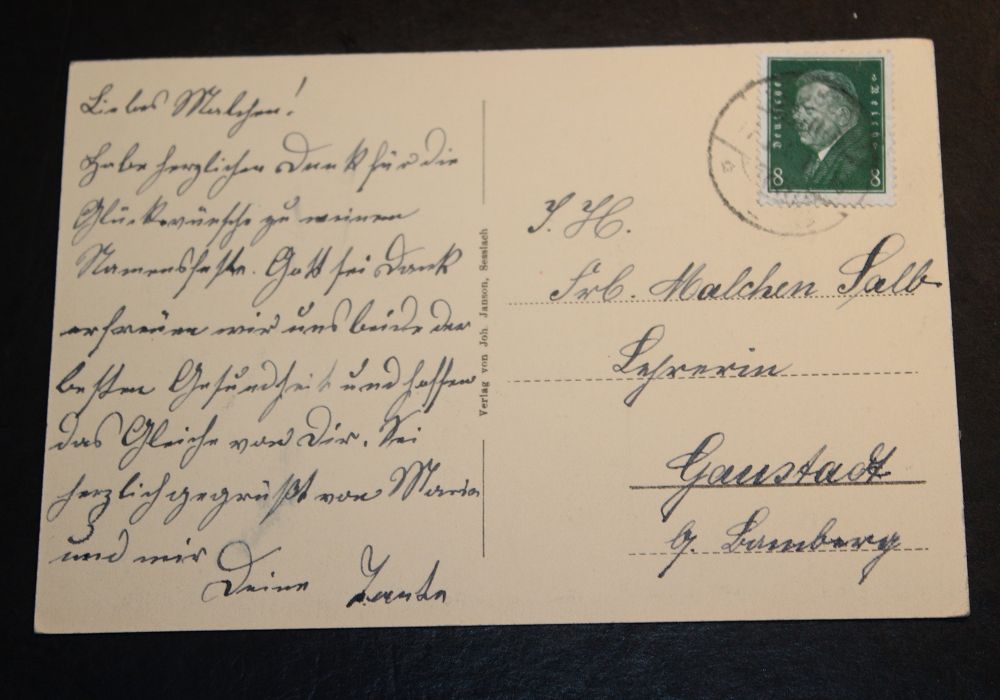 Liebes Malchen!
Habe herzlichen Dank für die
Glückwünsche zu meinem
Namensfeste. Gott sei Dank
erfreuen wir uns beide der
besten Gesundheit und hoffen
das Gleiche von Dir. Sei
herzlich gegrüßt von Maria
und mir
Deine Tante
Verlag von Joh. Janson, Sesslach
Deutsches Reich
8 8
S. H.
Frl. Malchen Salb
Lehrerin
Gaustadt
b. Bamberg